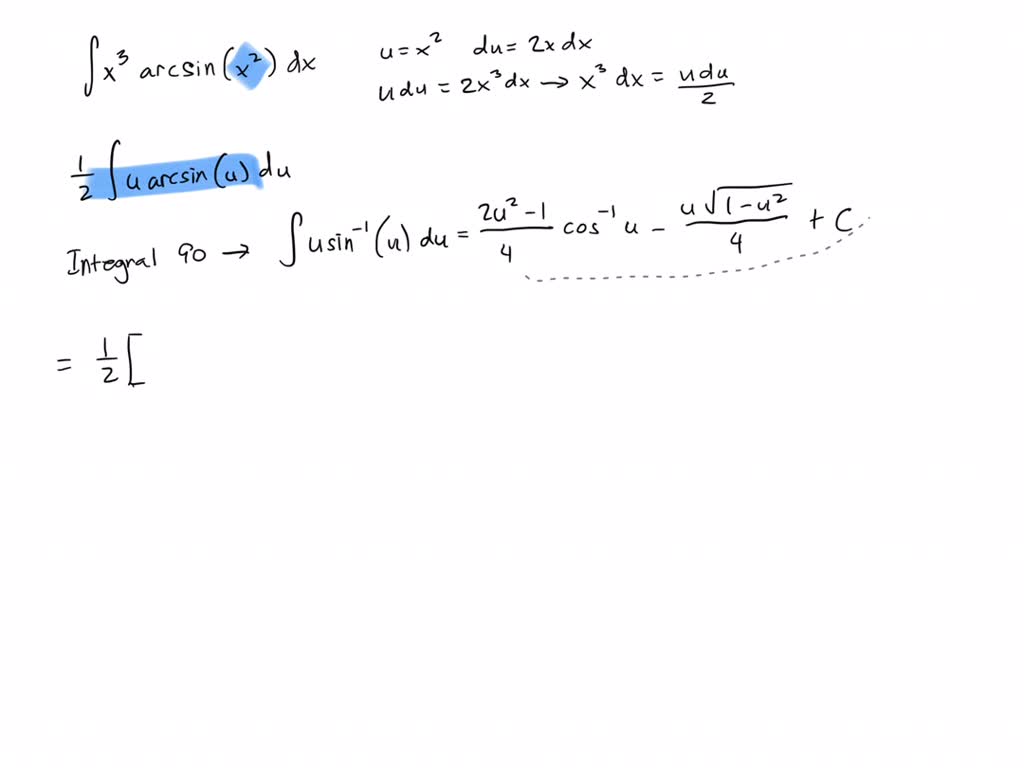 ∫x³ arcsin(x²) dx   u = x²   du = 2x dx
u du = 2x³ dx → x³ dx = u du / 2
1/2 ∫ u arcsin(u) du
Integral 90 → ∫ u sin⁻¹(u) du = (2u² − 1)/4 cos⁻¹ u − u√(1 − u²)/4 + C
= 1/2 [